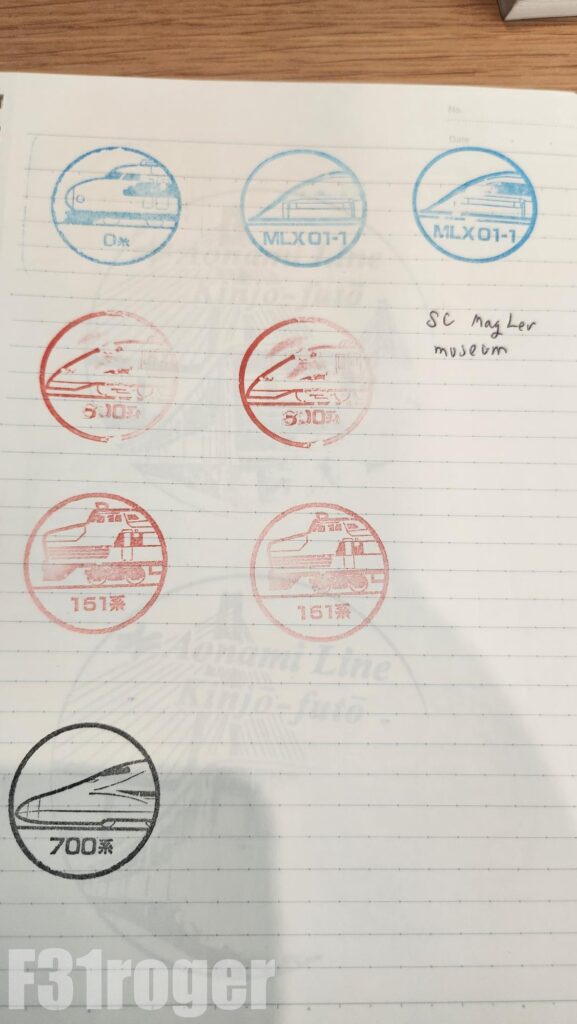 No.
Date
0系
MLX01-1
MLX01-1
SC MagLev
museum
Aonami Line
Kinjō-futō
800系
800系
151系
151系
Aonami Line
Kinjō-futō
700系
F31roger